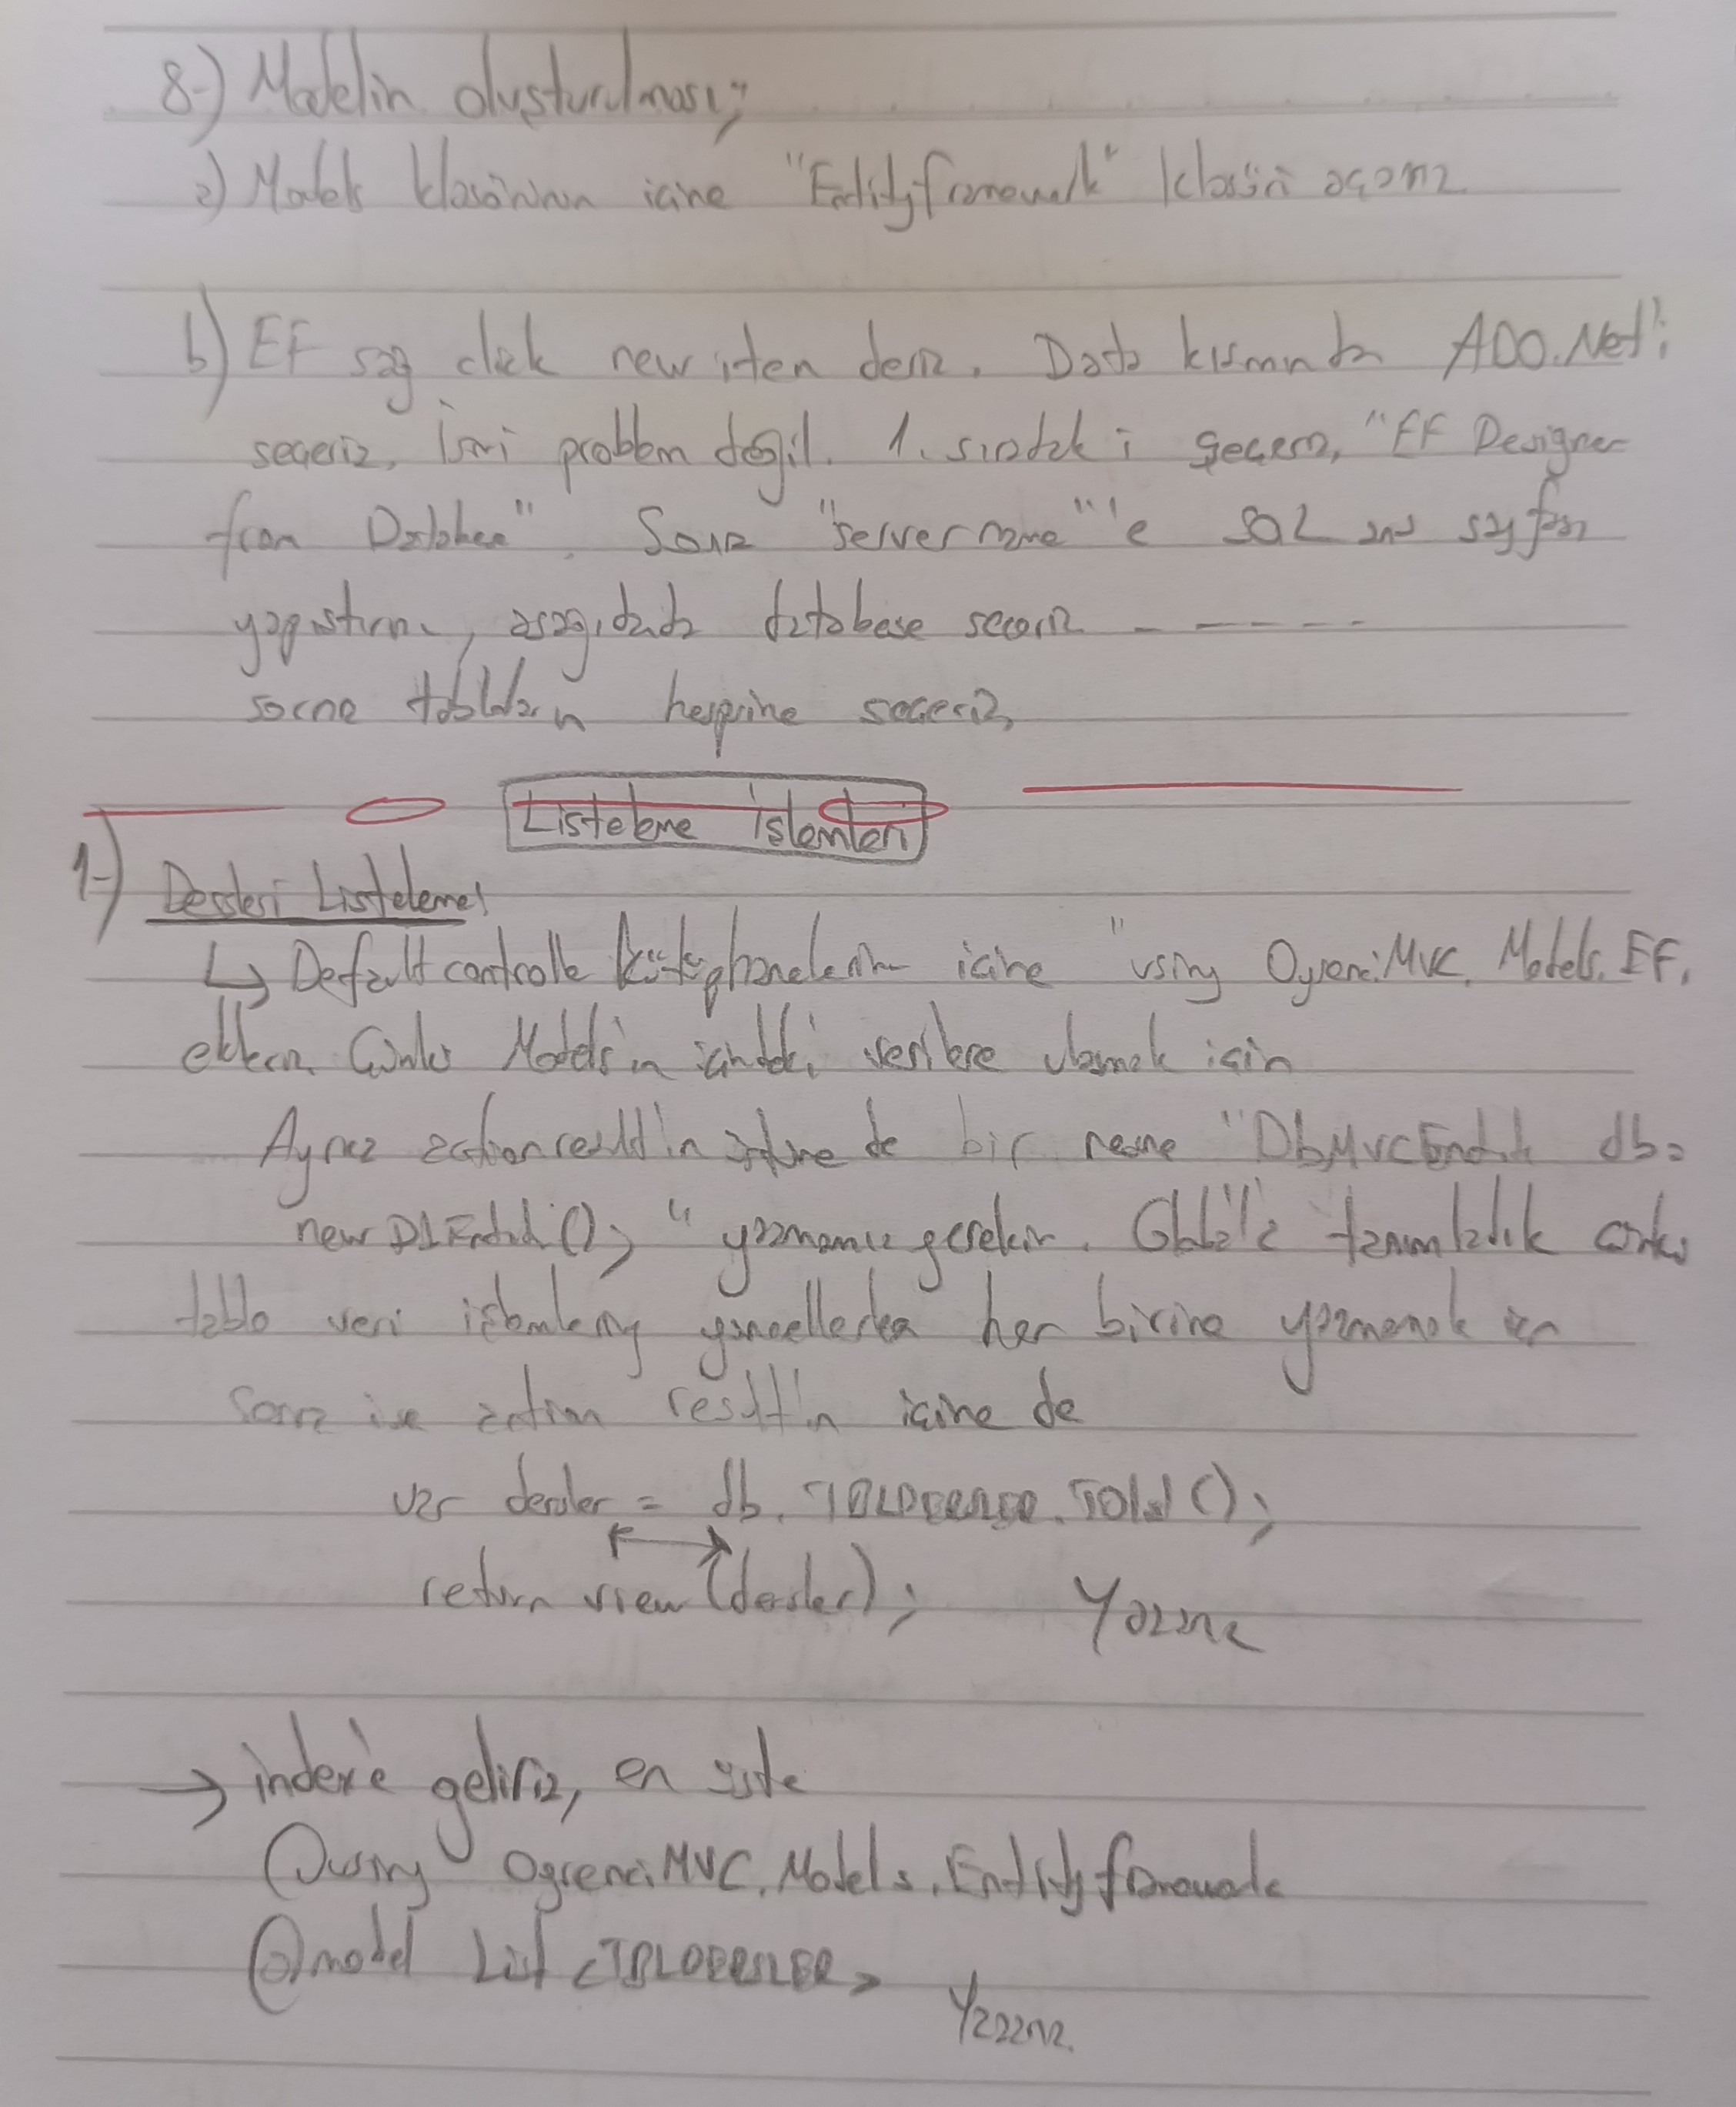 8-) Modelin oluşturulması;
a) Models klasörünün içine "Entityframework" klasörü açarız.
b) EF sağ click new item deriz. Data kısmında ADO.Net'i
seçeriz, İsmi problem değil. 1. sıradaki seçeriz, "EF Designer
from Database". Sonra "server name"'e SQL ana sayfası
yapıştırırız, aşağıdada database seçeriz - - - - - -
sonra tabloların hepsine seçeriz,
Listeleme İşlemleri
1-) Dersleri Listeleme:
↳ Default controlle kütüphanelerin içine "using OgrenciMVC. Models. EF,
ekleriz. Çünkü Models'in içindeki verilere ulaşmak için
Ayrıca actionresult'ın üstüne de bir nesne "DbMvcEntiti db=
new DbEntiti(); " yazmamız gerekir. Global'e tanımladık çünkü
tablo veri işlemlerini güncellerken her birine yazmamak için
Sonra ise action result'ın içine de
var dersler = db. TBLDERSLER. TOlist();
return view (dersler); Yazarız
→ index'e geliriz, en üste
@using OgrenciMVC. Models. Entityframework
@model List <TBLDERSLER> Yazarız.